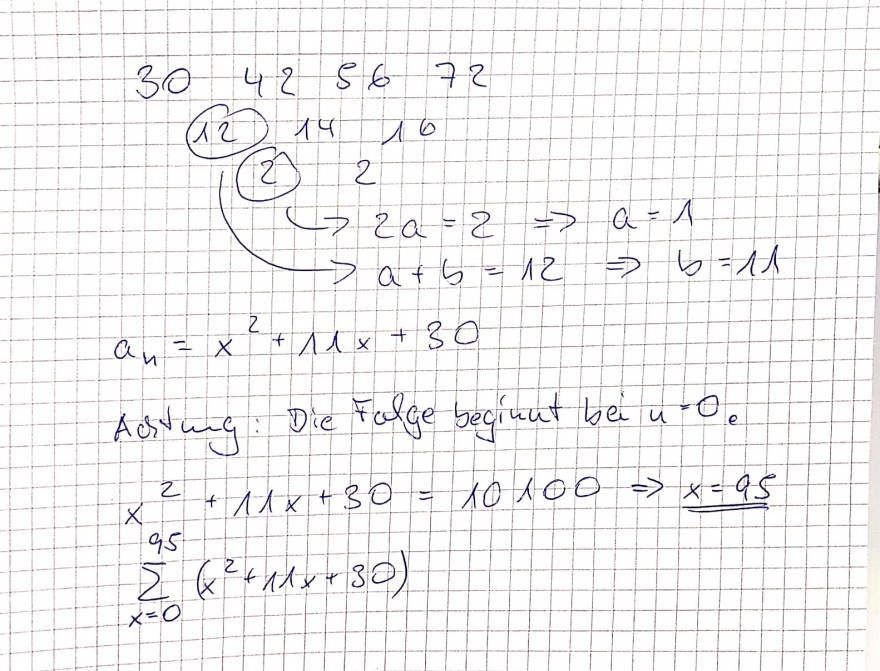 30 42 56 72
12 14 16
2 2
2a = 2 => a = 1
a + b = 12 => b = 11
aₙ = x² + 11x + 30
Achtung: Die Folge beginnt bei n=0.
x² + 11x + 30 = 10100 => x = 95
95
Σ (x²+11x+30)
x=0